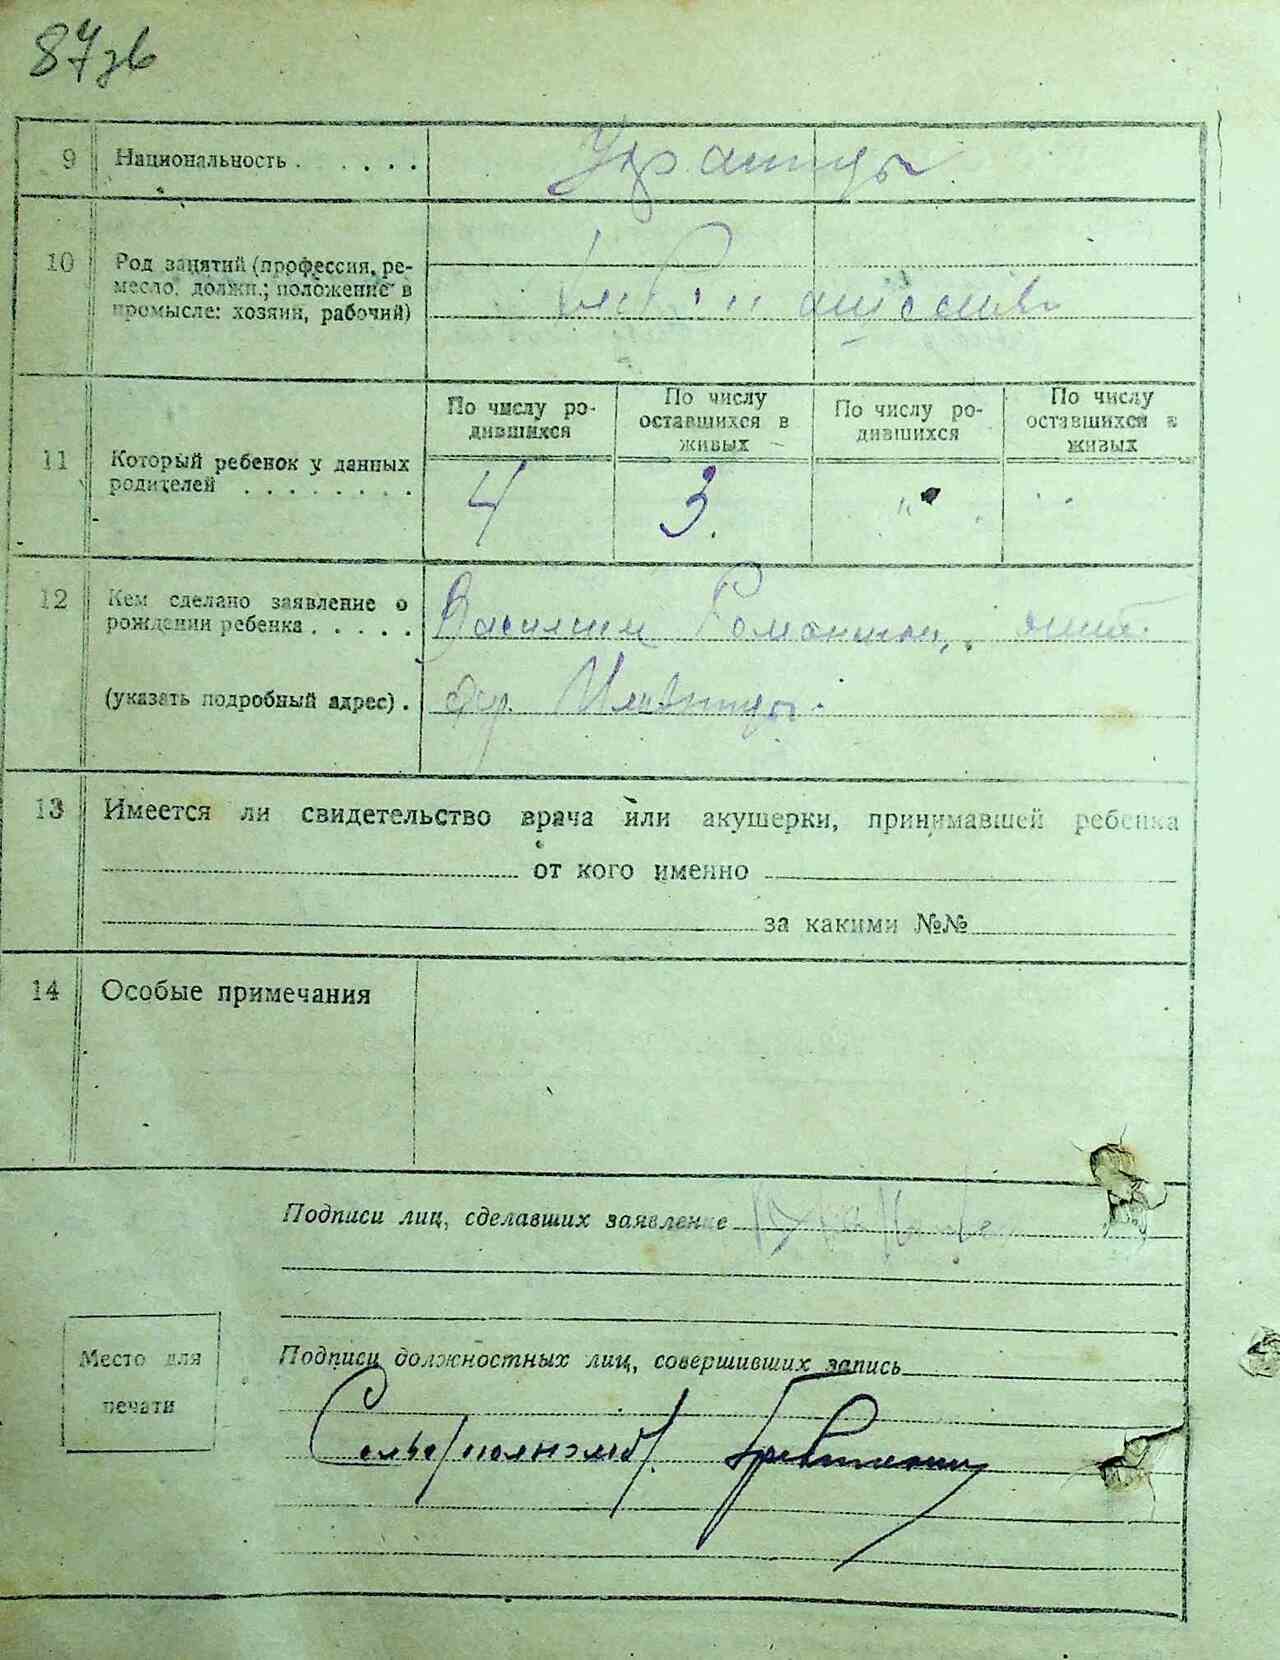 87 зв
9 Национальность . . . . .
Украинцы
10 Род занятий (профессия, ре-
месло, должн.; положение в
промысле: хозяин, рабочий)
11 Который ребенок у данных
родителей . . . . . . . .
По числу ро-
дившихся
По числу
оставшихся в
живых
По числу ро-
дившихся
По числу
оставшихся в
живых
4 3. "
12 Кем сделано заявление о
рождении ребенка . . . . .
Василий Романюк,
(указать подробный адрес) .
дер.
13 Имеется ли свидетельство врача или акушерки, принимавшей ребенка
от кого именно
за какими №№
14 Особые примечания
Подписи лиц, сделавших заявление
Место для
печати
Подписи должностных лиц, совершивших запись